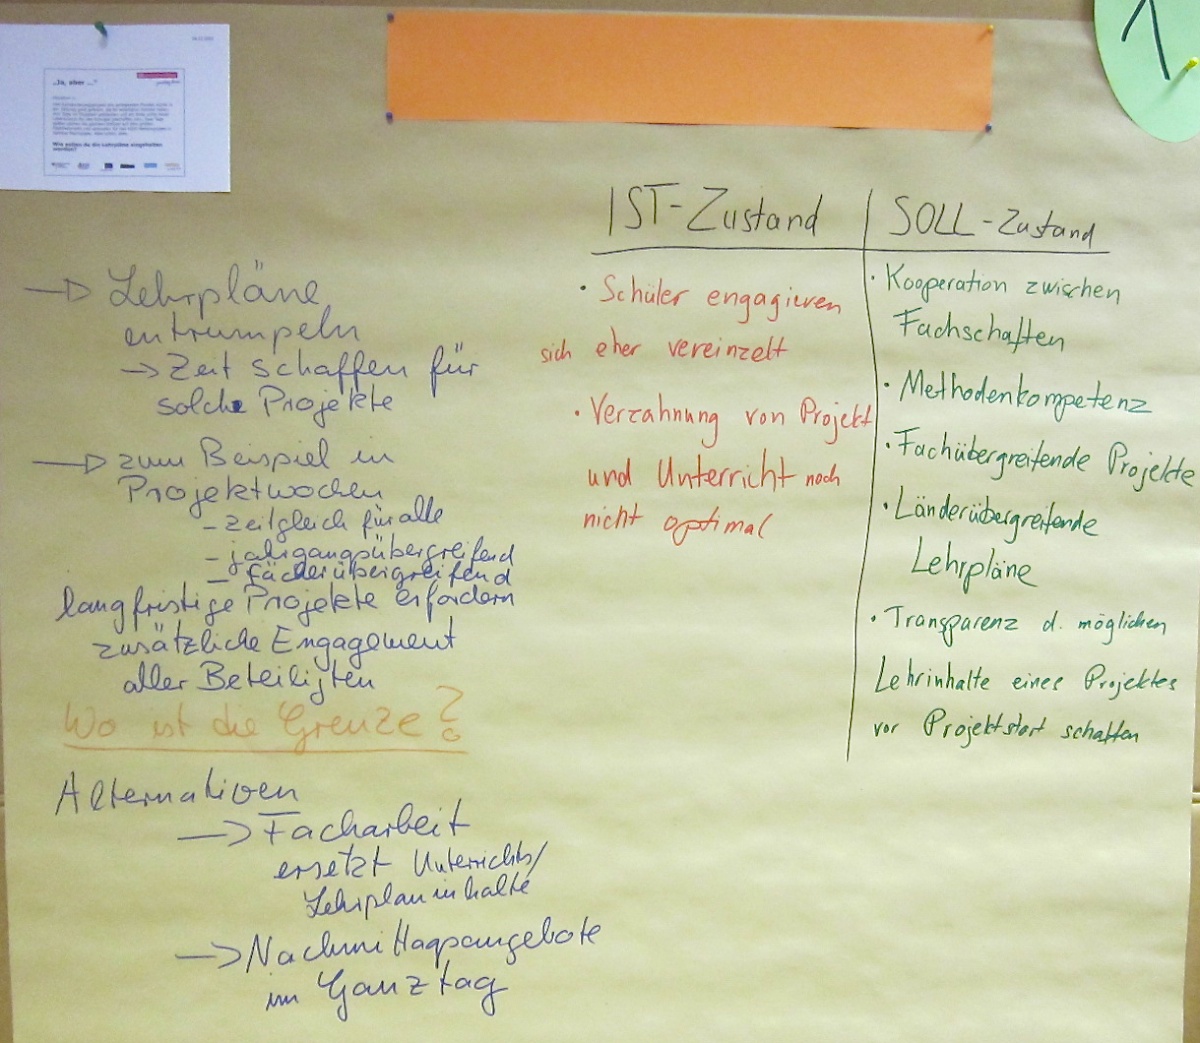 „Ja, aber ..."
Wie sollen da die Lehrpläne eingehalten
werden?
1
→ Lehrpläne
entrümpeln
→ Zeit schaffen für
solche Projekte
→ zum Beispiel in
Projektwochen
- zeitgleich für alle
- jahrgangsübergreifend
- fächerübergreifend
langfristige Projekte erfordern
zusätzliche Engagement
aller Beteiligten
Wo ist die Grenze?
Alternativen
→ Facharbeit
ersetzt Unterrichts/
Lehrplaninhalte
→ Nachmittagsangebote
im Ganztag
IST-Zustand
· Schüler engagieren
sich eher vereinzelt
· Verzahnung von Projekt
und Unterricht noch
nicht optimal
SOLL-Zustand
· Kooperation zwischen
Fachschaften
· Methodenkompetenz
· Fachübergreifende Projekte
· Länderübergreifende
Lehrpläne
· Transparenz d. möglichen
Lehrinhalte eines Projektes
vor Projektstart schaffen